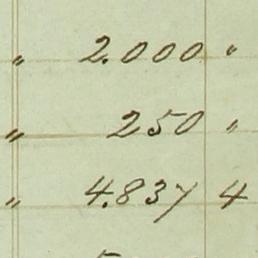 " 2.000 "
" 250 "
" 4.837 4